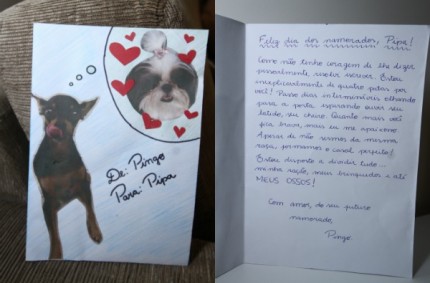 De: Pingo
Para: Pipa
Feliz dia dos namorados, Pipa!
Como não tenho coragem de lhe dizer
pessoalmente, resolvi escrever. Estou
inexplicavelmente de quatro patas por
você! Passo dias intermináveis olhando
para a porta esperando ouvir seu
latido, seu cheiro. Quanto mais você
fica brava, mais eu me apaixono.
Apesar de não sermos da mesma
raça, formamos o casal perfeito!
Estou disposto a dividir tudo:
minha ração, meus brinquedos e até
MEUS OSSOS!
Com amor, do seu futuro
namorado,
Pingo.